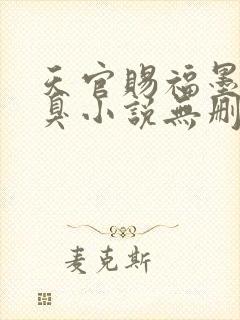 天官賜福墨
臭小說無刪
麦克斯